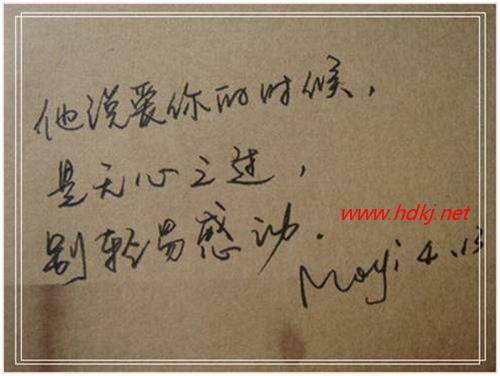 他说爱你的时候，
是无心之过，
别轻易感动．
www.hdkj.net
Moyi 4.13